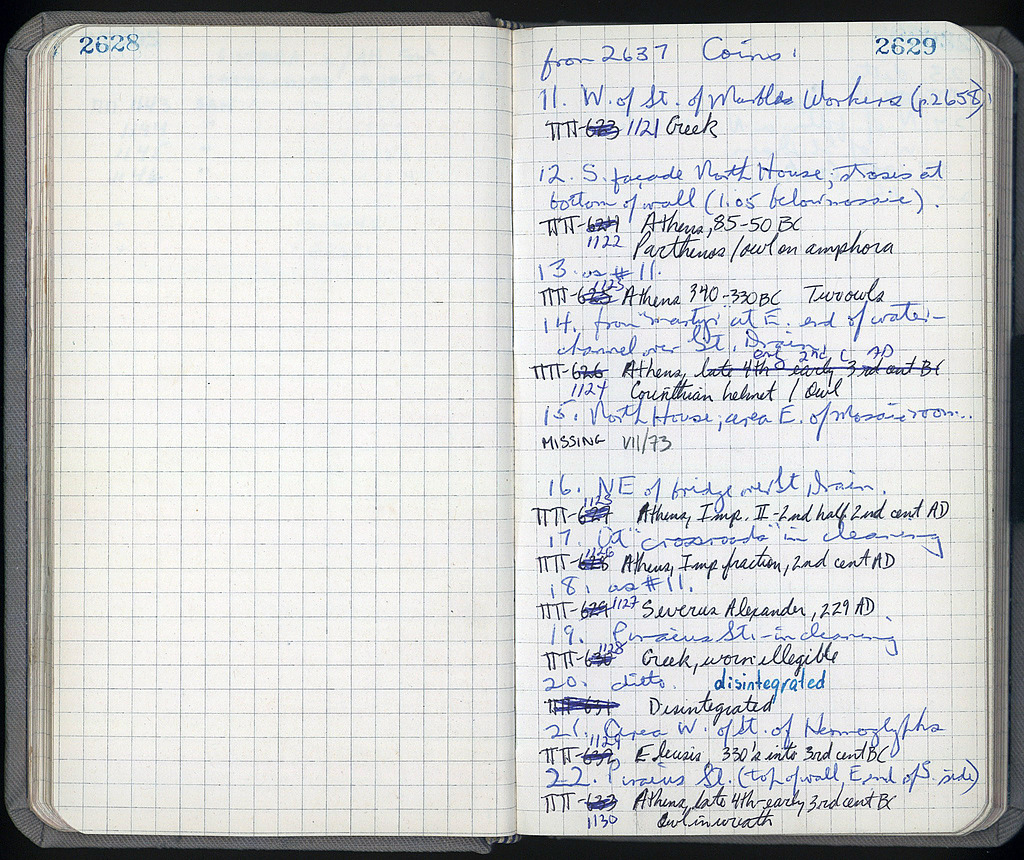 2628
2629
from 2637 Coins.
11. W. of St. of Marble Workers (p. 2658)
ΠΠ-623 1121 Greek
12. S. façade North House, stosis at
bottom of wall (1.05 below mosaic).
ΠΠ-624 Athens, 85-50 BC
1122 Parthenos/owl on amphora
13. as #11.
1123
ΠΠ-625 Athens 340-330 BC Two owls
14. from "martyr" at E. end of water-
channel over St. Drain
2nd c AD
ΠΠ-626 Athens, late 4th-early 3rd cent BC
1124 Corinthian helmet / Owl
15. North House, area E. of Mosaic room..
MISSING VII/73
16. NE of bridge over St. Drain.
1125
ΠΠ-627 Athens, Imp. II-2nd half 2nd cent AD
17. At "crossroads" in cleaning
1126
ΠΠ-628 Athens, Imp fraction, 2nd cent AD
18. as #11.
ΠΠ-629 1127 Severus Alexander, 229 AD
19. Piraeus St. - in cleaning
1128
ΠΠ-630 Greek, worn illegible
20. ditto. disintegrated
ΠΠ-631 Disintegrated
21. Area W. of St. of Hermoglyphs
1129
ΠΠ-632 Eleusis, 330's into 3rd cent BC
22. Piraeus St. (top of wall, E end of S. side)
ΠΠ-633 Athens, late 4th-early 3rd cent BC
1130 Owl in wreath